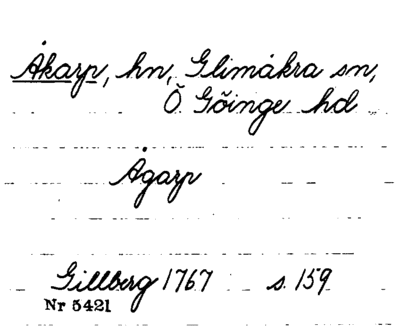 Åkarp, hn, Glimåkra sn,
Ö Göinge hd
Ågarp
Gillberg 1767 s. 159
Nr 5421